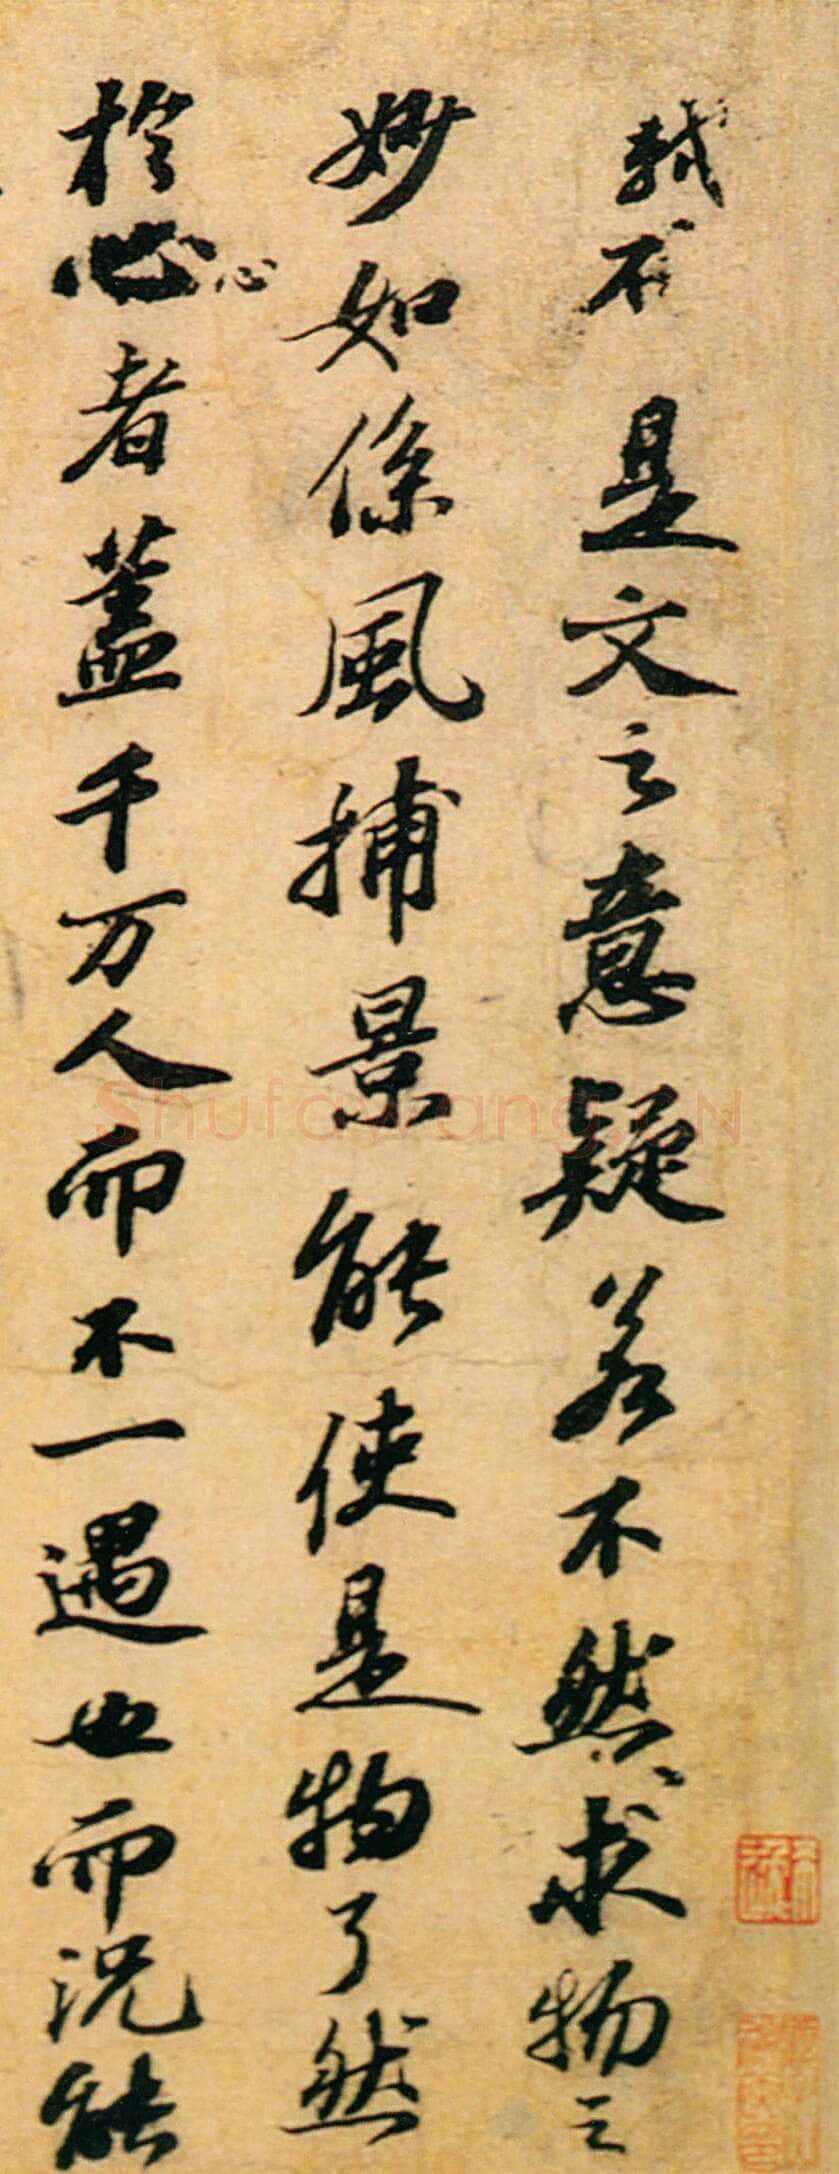 軾不是文之意疑若不然求物之
妙如係風捕景能使是物了然
於心心者蓋千万人而不一遇也而況能